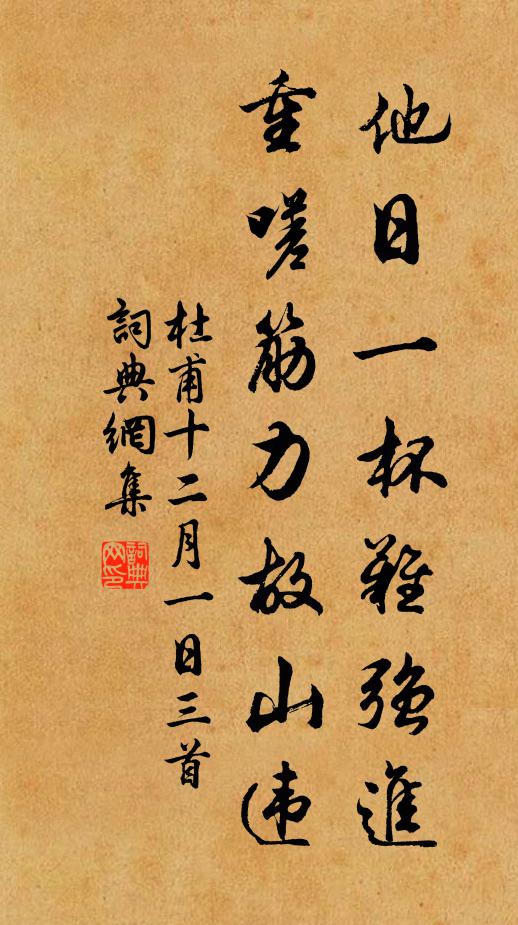 他日一杯難強進
重嗟筋力故山违
杜甫十二月一日三首
詞典網集
詞典网印